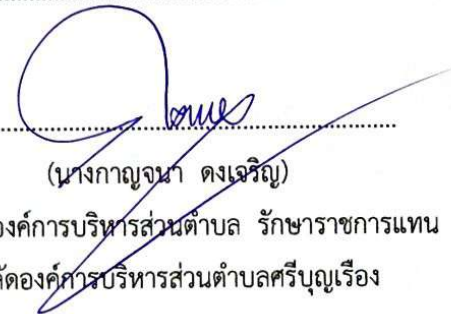 (นางกาญจนา ดงเจริญ)
องค์การบริหารส่วนตำบล รักษาราชการแทน
ัดองค์การบริหารส่วนตำบลศรีบุญเรือง